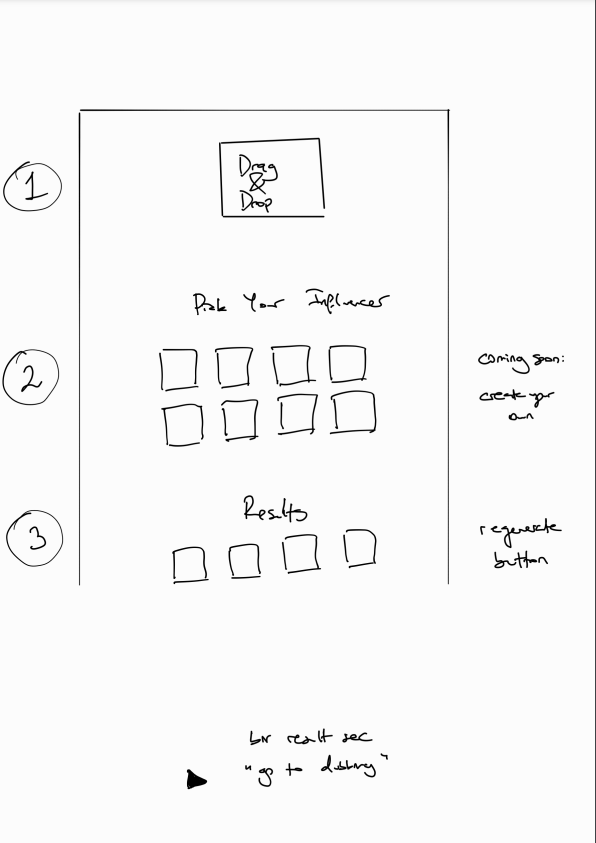 1
Drag
&
Drop
Pick Your Influencer
2
coming soon:
create your
own
Results
3
regenerate
button
result sec
"go to